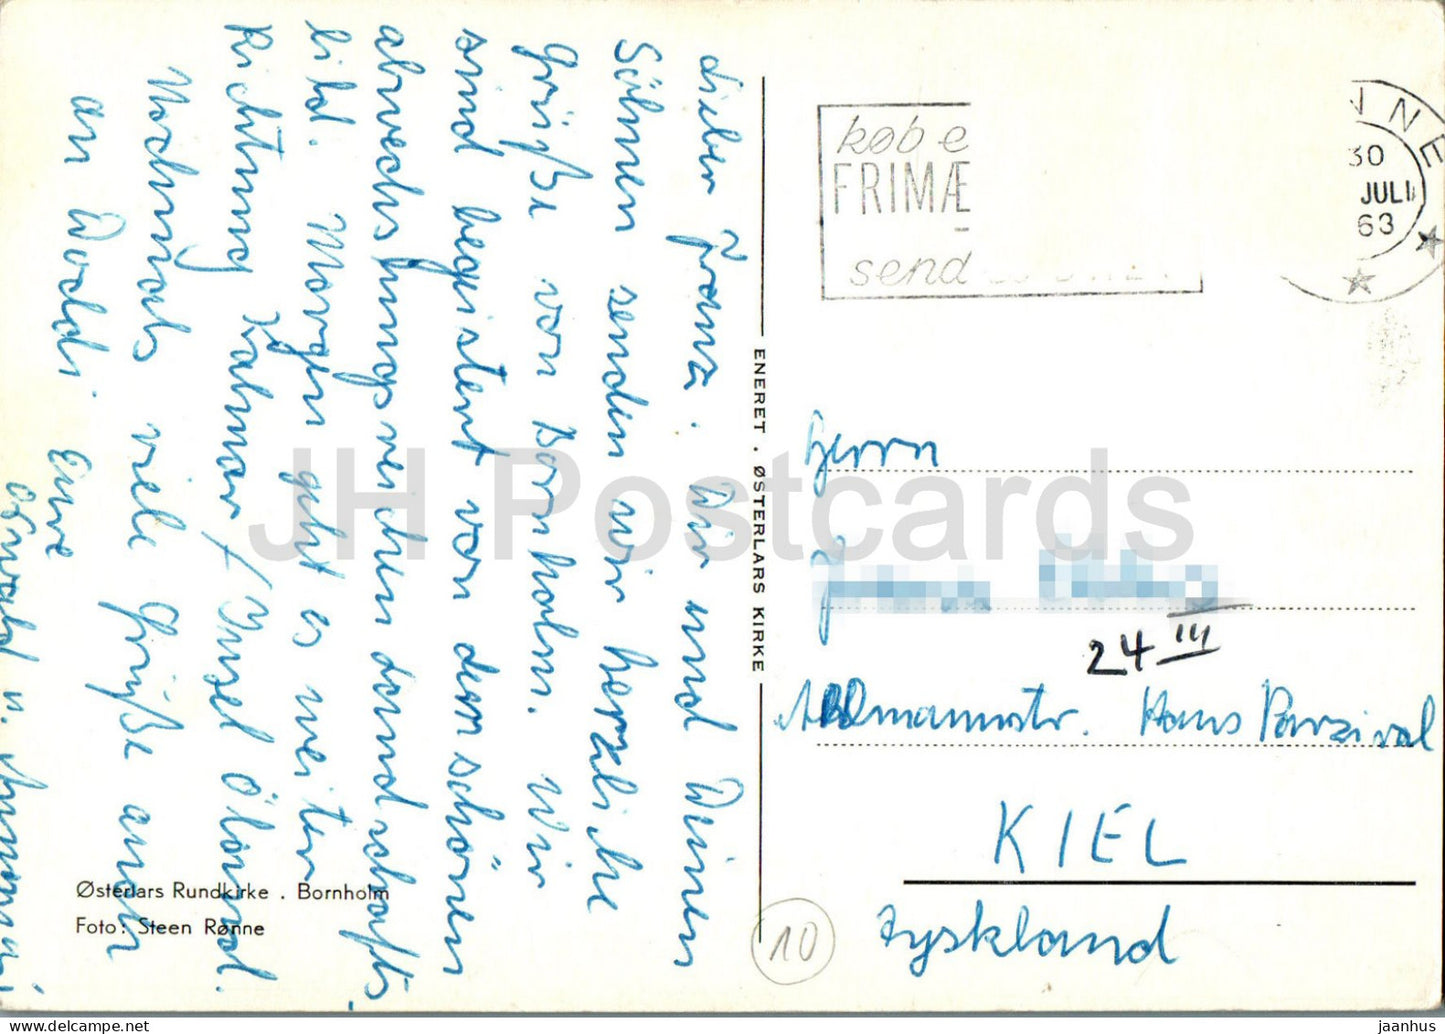 Lieber Franz. Dir und Deinen
Söhnen senden wir herzliche
Grüße von Bornholm. Wir
sind begeistert von dem schönen
abwechslungsreichen Landschafts
bild. Morgen geht es weiter
Richtung Kalmar / Insel Öland.
Nochmals viele Grüße auch
an Waldi. Eure
Oswald u.
Østerlars Rundkirke . Bornholm
Foto: Steen Rønne
ENERET . ØSTERLARS KIRKE
købe
FRIMÆ
send
NNE
30
JULI
63
Herrn
24 III
Hans Parzival
KIEL
Tyskland
10
JH Postcards
jaanhus